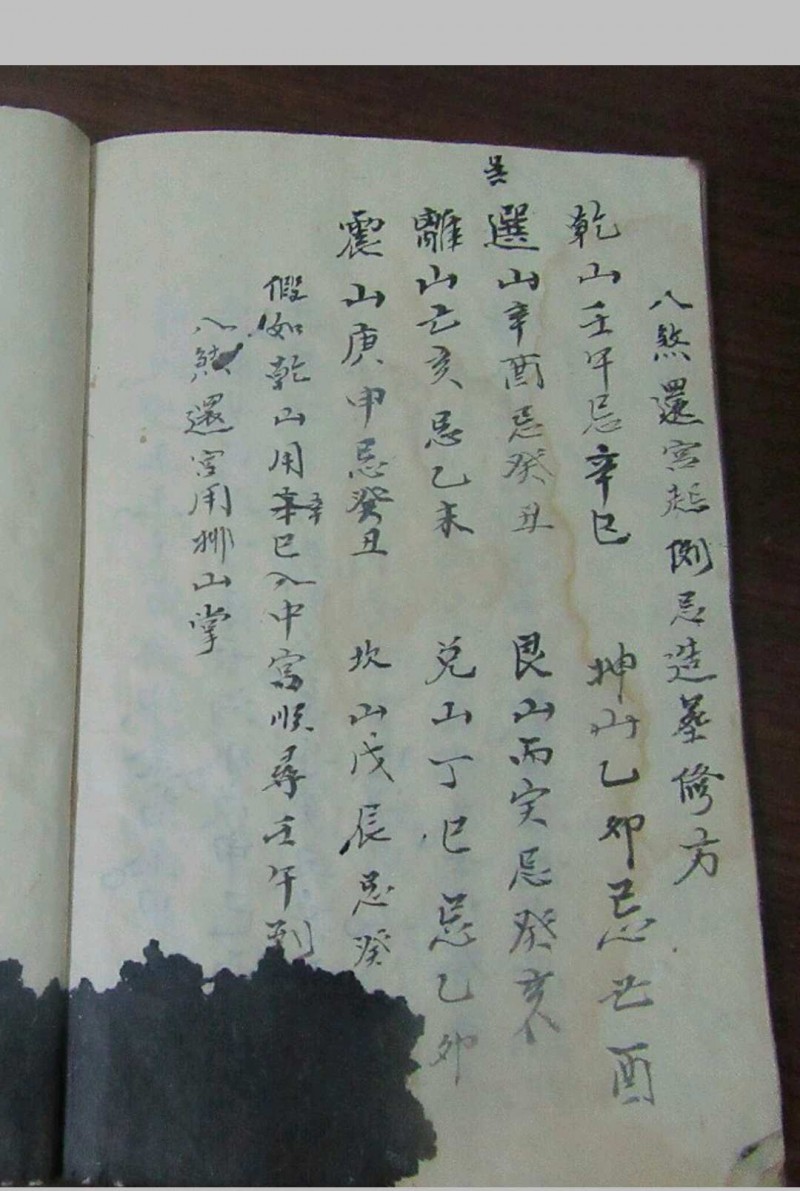 八煞還宮起例忌造塟修方
乾山壬午忌辛巳 坤山乙卯忌 酉
巽
選山辛酉忌癸丑 艮山丙寅忌癸亥
離山己亥忌乙未 兑山丁巳忌乙卯
震山庚申忌癸丑 坎山戊辰忌癸
假如乾山用辛巳入中宮順尋壬午到
辛
八煞還宮用排山掌